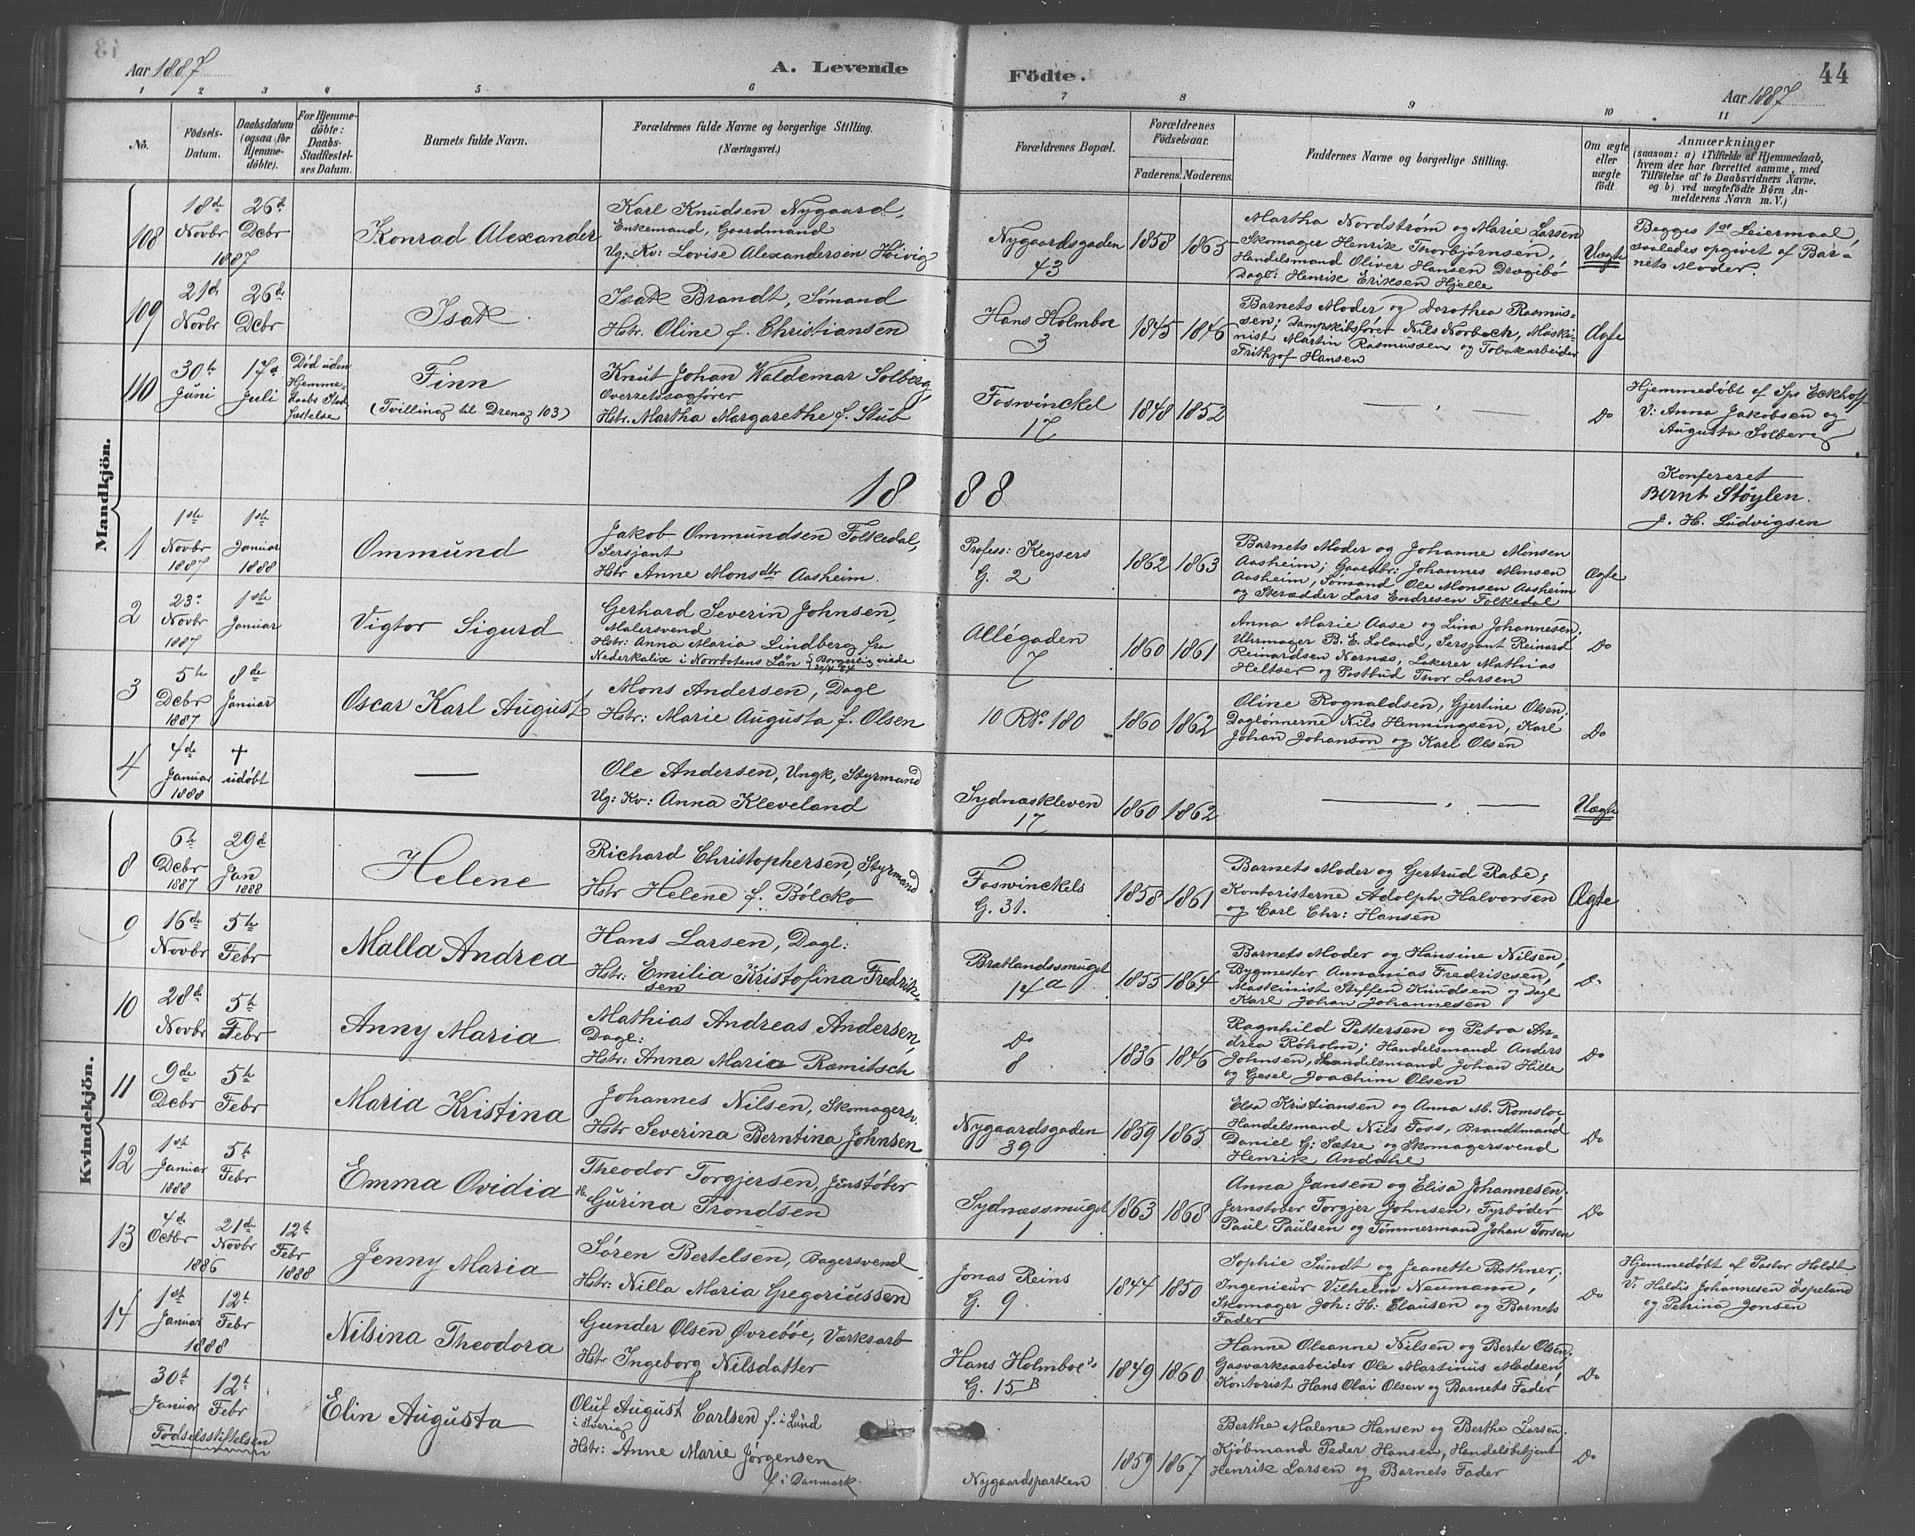 Aar 1887
A. Levende
Födte.
44
Aar 1887
1 2 3 4 5 6 7 8 9 10 11
No.
Födsels-
Datum.
Daabsdatum
(ogsaa for
Hjemme-
döbte).
For Hjemme-
döbte:
Daabs-
Stadfæstel-
ses Datum.
Barnets fulde Navn.
Forældrenes fulde Navne og borgerlige Stilling.
(Næringsvei.)
Forældrenes Bopæl.
Forældrenes
Födselsaar.
Faderens. Moderens.
Faddernes Navne og borgerlige Stilling.
Om ægte
eller
uægte
födt
Anmærkninger
(saasom: a) i Tilfælde af Hjemmedaab,
hvem der har forrettet samme, med
Tilföielse af to Daabsvidners Navne,
og b) ved uægtefödte Börn An-
melderens Navn m. V.)
Mandkjön.
108
18de
Novbr
1887
26d
Dcbr
Konrad Alexander
Karl Knudsen Nygaard,
Enkemand, Gaardmand
Ug: Kv: Lovise Alexandersen Höivig
Nygaardsgaden
43
1858
1865
Martha Nordstrøm og Marie Larsen
Skomager Henrik Thorbjørnsen,
Handelsmand Oliver Hansen Drægibö
Dagl: Henrik Eriksen Hjelle
Uægte
Begges 1st Leiermaal,
saaledes opgivet af Bar-
nets Moder.
109
21d
Novbr
26d
Dcbr
Isak
Isak Brandt, Sømand
Hstr. Oline f. Christiansen
Hans Holmboe
3
1845
1846
Barnets Moder og Dorothea Rasmus-
sen; Dampskibsfører Nils Norbech, Maski-
nist Martin Rasmussen og Tobakarbeider
Frithjof Hansen
Ægte
110
30te
Juni
17d
Juli
Død uden
Hjemme-
daabs Stad-
fæstelse
Finn
(Tvilling til Dreng 103)
Knut Johan Waldemar Solberg,
Overretssagfører
Hstr. Martha Margarethe f. Stub
Foswinckel
17
1848
1852
Do
Hjemmedøbt af Sps Eckhoff
V: Anna Jakobsen og
Augusta Solberg
1888
Konfereret
Bernt Støylen.
J. H. Ludvigsen
1
1ste
Novbr
1887
1ste
Januar
1888
Ommund
Jakob Ommundsen Folkedal,
Sersjant
Hstr Anne Monsdtr Aasheim.
Profess: Keysers
G. 2
1862
1863
Barnets Moder og Johanne Monsen
Aasheim; Gaardbr: Johannes Monsen
Aasheim, Sømand Ole Monsen Aasheim
og Skrædder Lars Endresen Folkedal
Ægte
2
23de
Novbr
1887
1ste
Januar
Vigtor Sigurd
Gerhard Severin Johnsen,
Malersvend
Hstr: Anna Maria Lindberg fra
Nederkalix i Norrbotens Län Borgerlig viede
Allégaden
7
1860
1861
Anna Marie Aase og Lina Johannesen;
Uhrmager B. E. Loland, Sersjant Reinard
Reinardsen Nernæs, Lakerer Mathias
Heltser og Postbud Thor Larsen
Do
3
5te
Dcbr
1887
8de
Januar
Oscar Karl August
Mons Andersen, Dagl
Hstr: Marie Augusta f. Olsen
10 Rde 180
1860
1862
Oline Rognaldsen, Gjertine Olsen,
Daglønnerne Nils Henningsen, Karl
Johan Johanson og Karl Olsen
Do
4
4de
Januar
1888
†
udøbt
Ole Andersen, Ungk, Styrmand
Ug: Kv: Anna Kleveland
Sydnæskleven
17
1860
1862
Uægte
Kvindekjön.
8
6te
Dcbr
1887
29d
Jan
1888
Helene
Richard Christophersen, Styrmand
Hstr Helene f. Bölcko
Foswinckels
G. 31.
1858
1861
Barnets Moder og Gertrud Rabe;
Kontoristerne Adolph Halvorsen
og Carl Chr: Hansen
Ægte
9
16de
Novbr
5te
Febr
Malla Andrea
Hans Larsen, Dagl:
Hstr: Emilia Kristofina Fredrik-
sen
Bratlandssmuget
14a
1855
1864
Barnets Moder og Hansine Nilsen;
Bygmester Annanias Fredriksen,
Maskinist Steffen Knudsen og Dagl
Karl Johan Johannesen
Do
10
28de
Novbr
5te
Febr
Anny Maria
Mathias Andreas Andersen,
Dagl:
Hstr: Anna Maria Ramitsch
Do
8
1836
1846
Ragnhild Pettersen og Petra An-
drea Røholm; Handelsmand Anders
Johnsen, Handelsmand Johan Hille
og Gesel Joachim Olsen
Do
11
9de
Dcbr
5te
Febr
Maria Kristina
Johannes Nilsen, Skomagersv.
Hstr Severina Berntina Johnsen
Nygaardsgaden
39
1859
1865
Elsa Kristiansen og Anna M. Romsloe
Handelsmand Nils Foss, Brandtmand
Daniel G: Sætre og Skomagersvend
Henrik Andahl
Do
12
1st
Januar
1888
5te
Febr
Emma Ovidia
Theodor Torgjersen, Jernstøber
H. Gurina Trondsen
Sydnæssmuget
1
1863
1868
Anna Jansen og Elisa Johannesen;
Jernstøber Torgjer Johnsen, Fyrbøder
Paul Paulsen og Tømmermand Johan Torsen
Do
13
4d
Octbr
21de
Novbr
1886
12t
Febr
1888
Jenny Maria
Søren Bertelsen, Bagersvend
Hstr: Nilla Maria Gregoriussen
Jonas Reins
G. 9
1844
1850
Sophie Sundt og Jeanette Bothner;
Ingeniør Vilhelm Neumann,
Skomager Joh: H: Clausen og Barnets
Fader
Do
Hjemmedøbt af Pastor Holdt
V: Haldis Johannesen Espeland
og Petrina Jonsen
14
1st
Januar
1888
12t
Febr
Nilsina Theodora
Gunder Olsen Øvrebøe, Værksarb
Hstr Ingeborg Nilsdatter
Hans Holmboe's
G. 15B
1849
1860
Hanne Oleanne Nilsen og Berte Olsen;
Gasværksarbeider Ole Martinus Madsen,
Kontorist Hans Olai Olsen og Barnets Fader
Do
30te
Januar
12t
Febr
Fødselsstiftelsen
Elin Augusta
Oluf August Carlsen f. i Lund
i Sverig
Hstr: Anne Marie Jørgensen
f. i Danmark.
Nygaardsparken
1859
1867
Berthe Malene Hansen og Berthe Larsen;
Kjøbmand Peder Hansen, Handelsbetjent
Henrik Larsen og Barnets Fader
Do